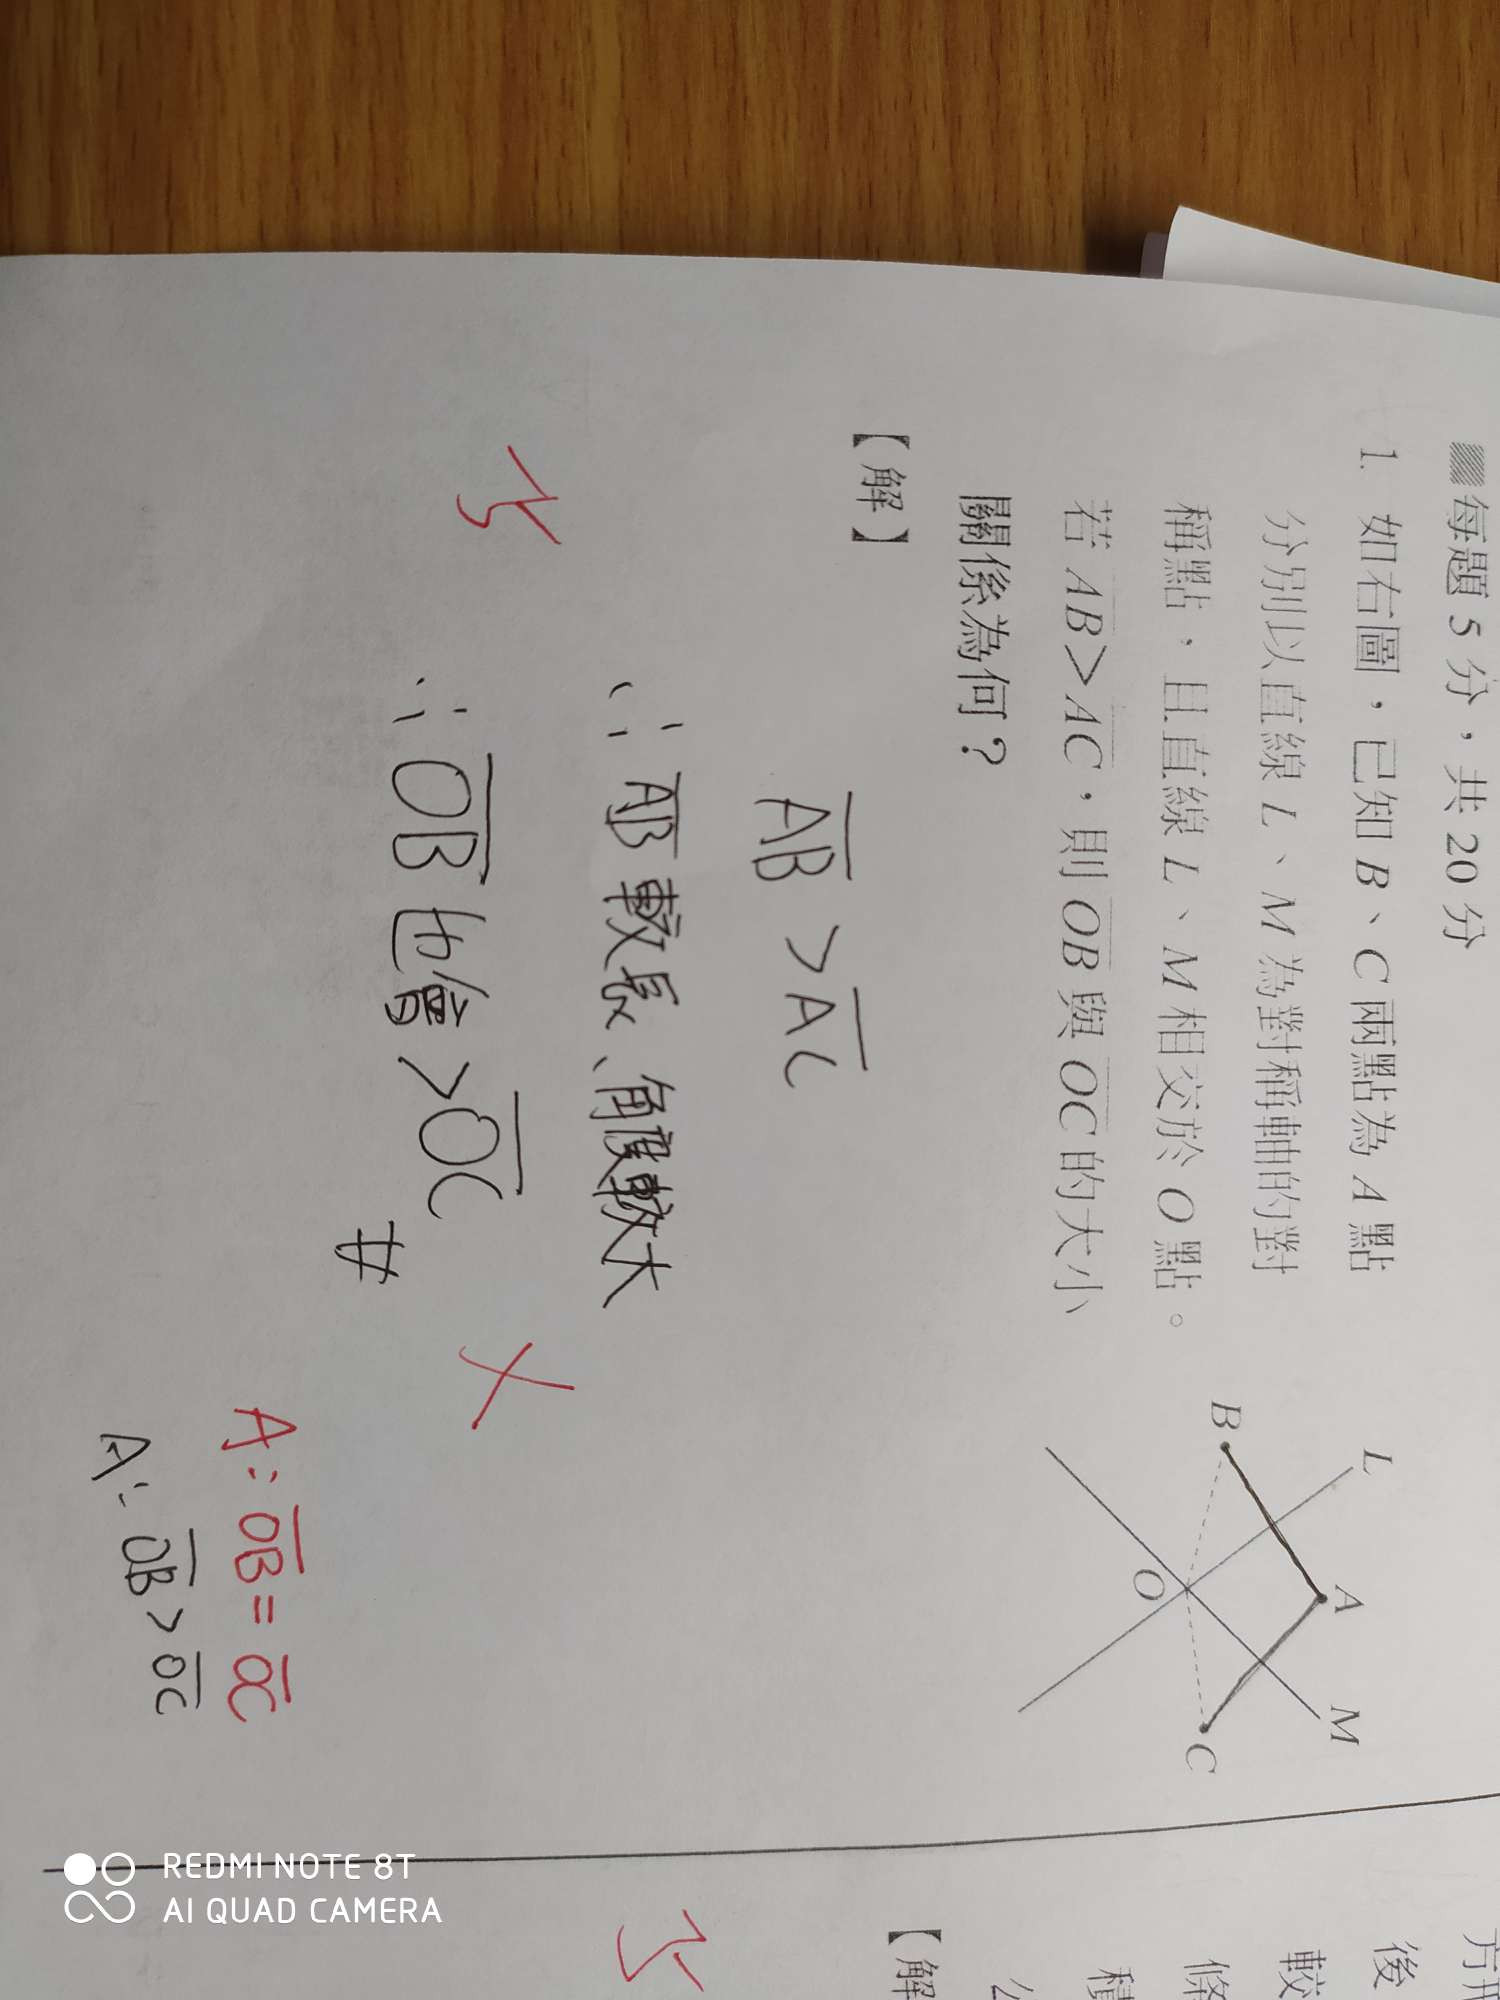 每題 5 分，共 20 分
1. 如右圖，已知 B、C 兩點為 A 點
分別以直線 L、M 為對稱軸的對
稱點，且直線 L、M 相交於 O 點。
若 AB＞AC，則 OB 與 OC 的大小
關係為何？
L
A
M
B
O
C
【解】
AB > AC
∵ AB 較長、角度較大
∴ OB 也會 > OC #
A: OB = OC
A: OB > OC
方
後
較
條
積
【解
REDMI NOTE 8T
AI QUAD CAMERA